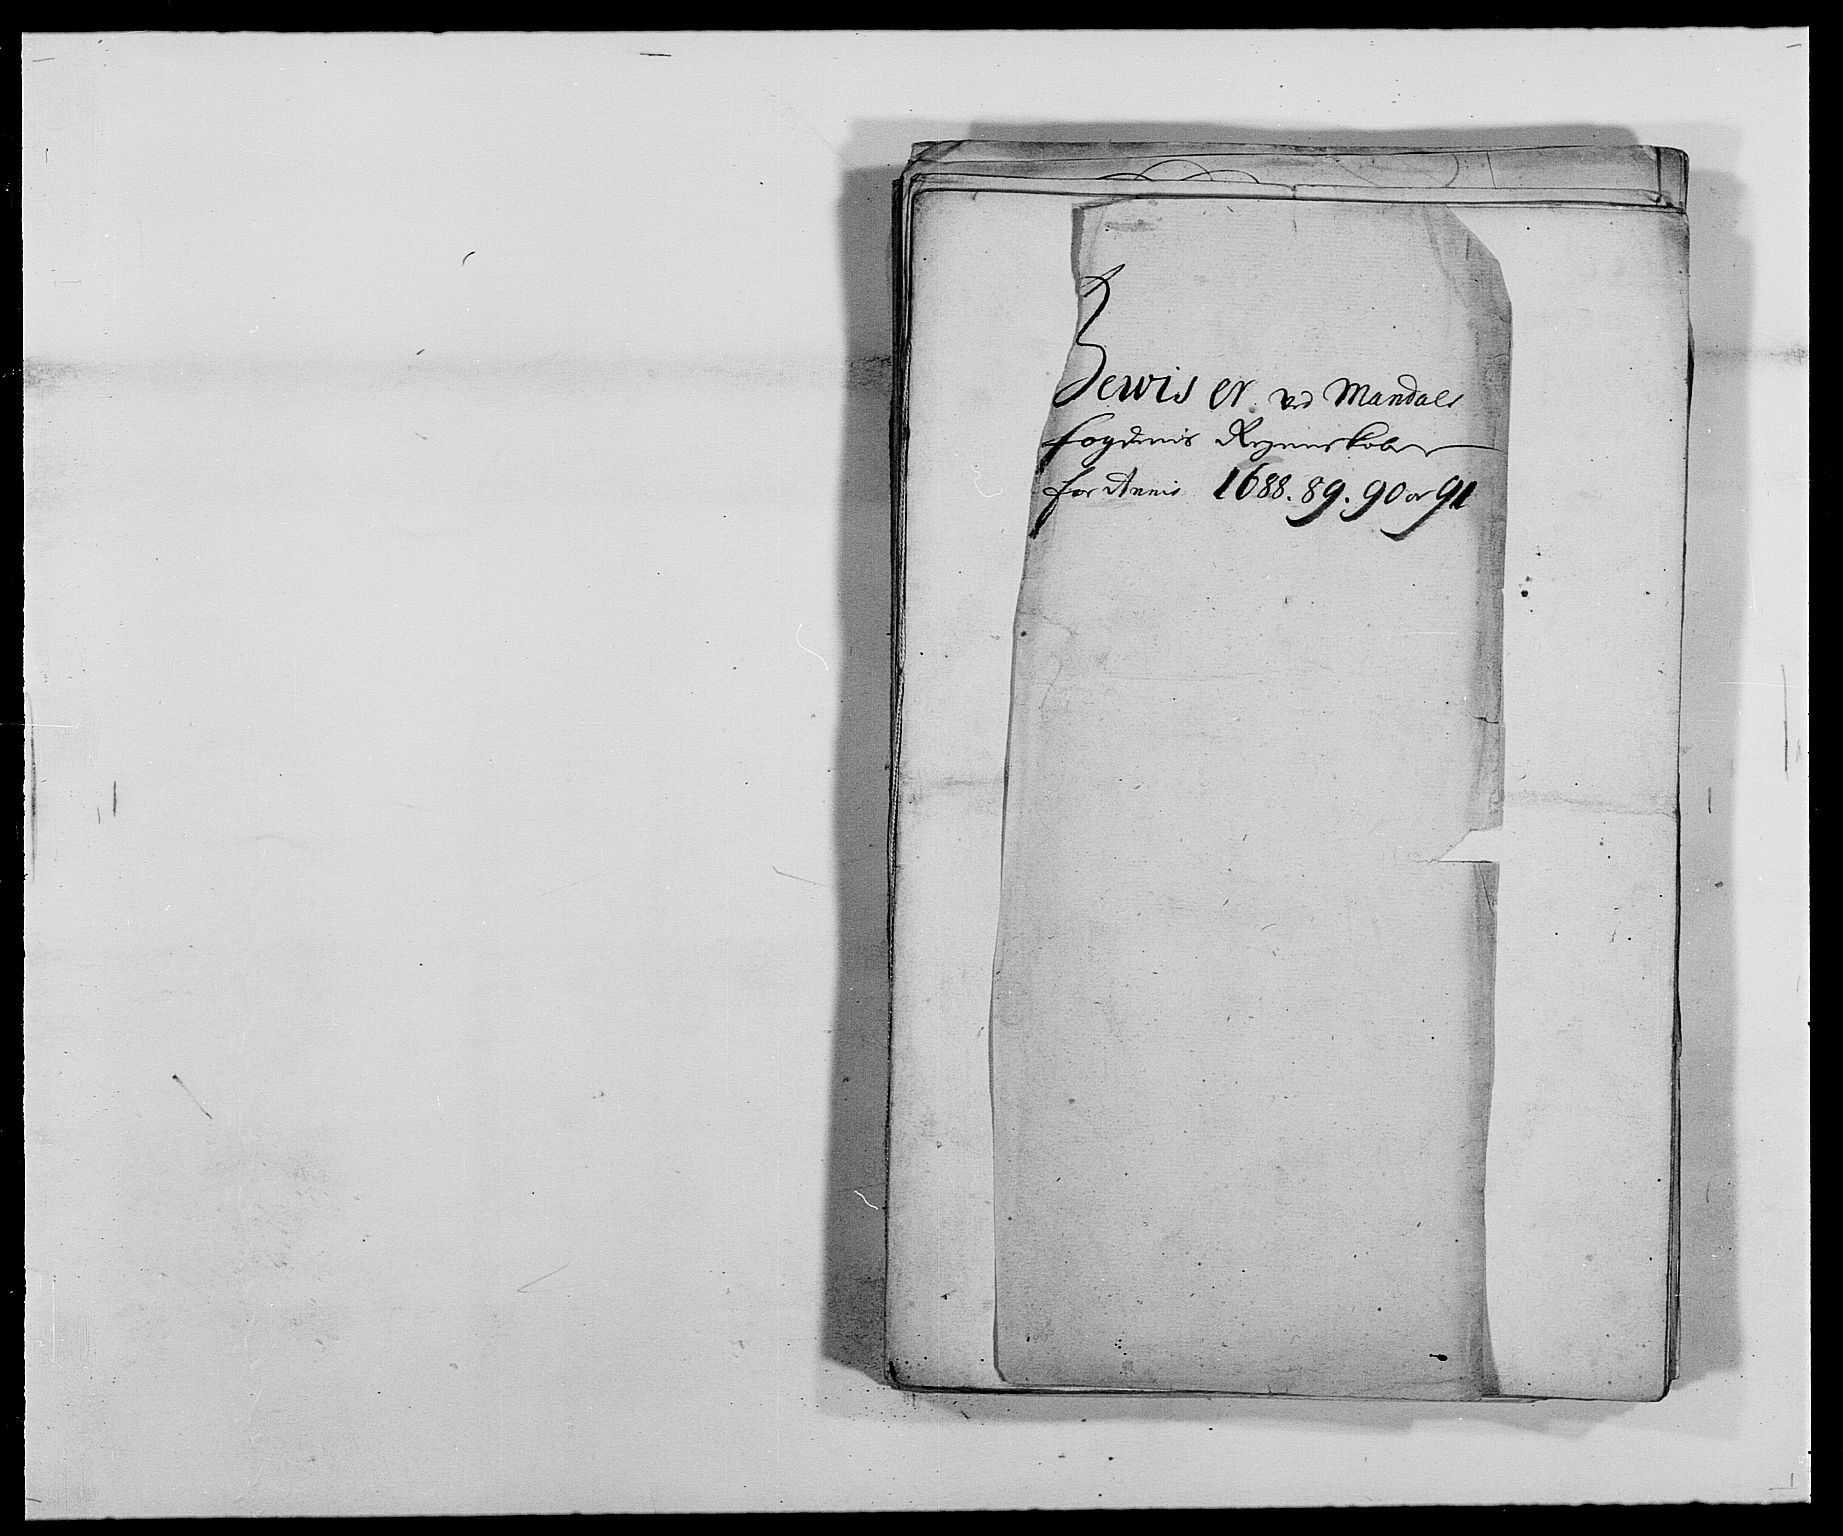 Bewiser ved Mandals
fogderis Regenskaber
for Annis 1688. 89. 90 og 91